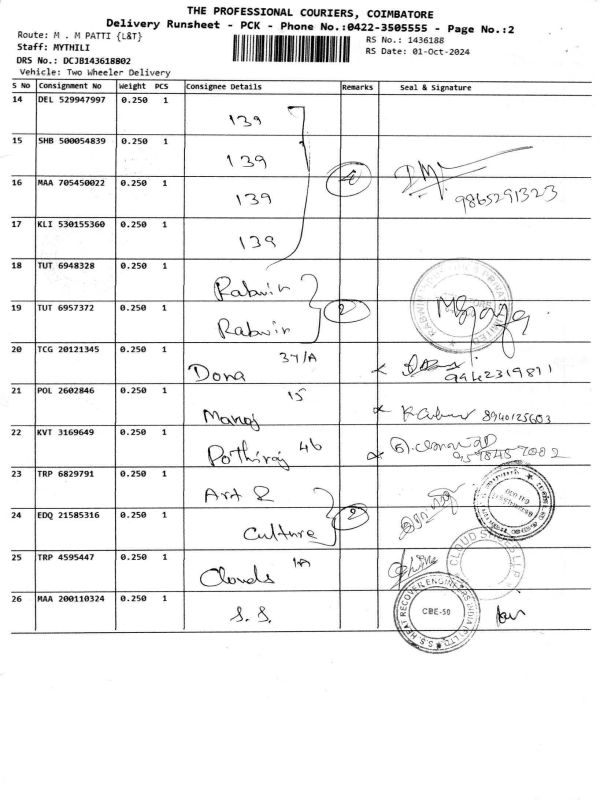 THE PROFESSIONAL COURIERS, COIMBATORE
Delivery Runsheet - PCK - Phone No.:0422-3505555 - Page No.:2
Route: M . M PATTI {L&T}
RS No.: 1436188
Staff: MYTHILI
RS Date: 01-Oct-2024
DRS No.: DCJB143618802
Vehicle: Two Wheeler Delivery
S No Consignment No Weight PCS Consignee Details Remarks Seal & Signature
14 DEL 529947997 0.250 1 139
15 SHB 500054839 0.250 1 139
16 MAA 705450022 0.250 1 139 4 9865291323
17 KLI 530155360 0.250 1 139
18 TUT 6948328 0.250 1 Rabwin
19 TUT 6957372 0.250 1 Rabwin 2
20 TCG 20121345 0.250 1 Dona 37/A
21 POL 2602846 0.250 1 Manoj 15 8940125603
22 KVT 3169649 0.250 1 Pothiraj 46
23 TRP 6829791 0.250 1 Art &
24 EDQ 21585316 0.250 1 Culture 2
25 TRP 4595447 0.250 1 Clouds 1A CLOUD
26 MAA 200110324 0.250 1 S.S. S.S. HEAT RECOVER ENGINEERS INDIA (P) LTD. CBE-50